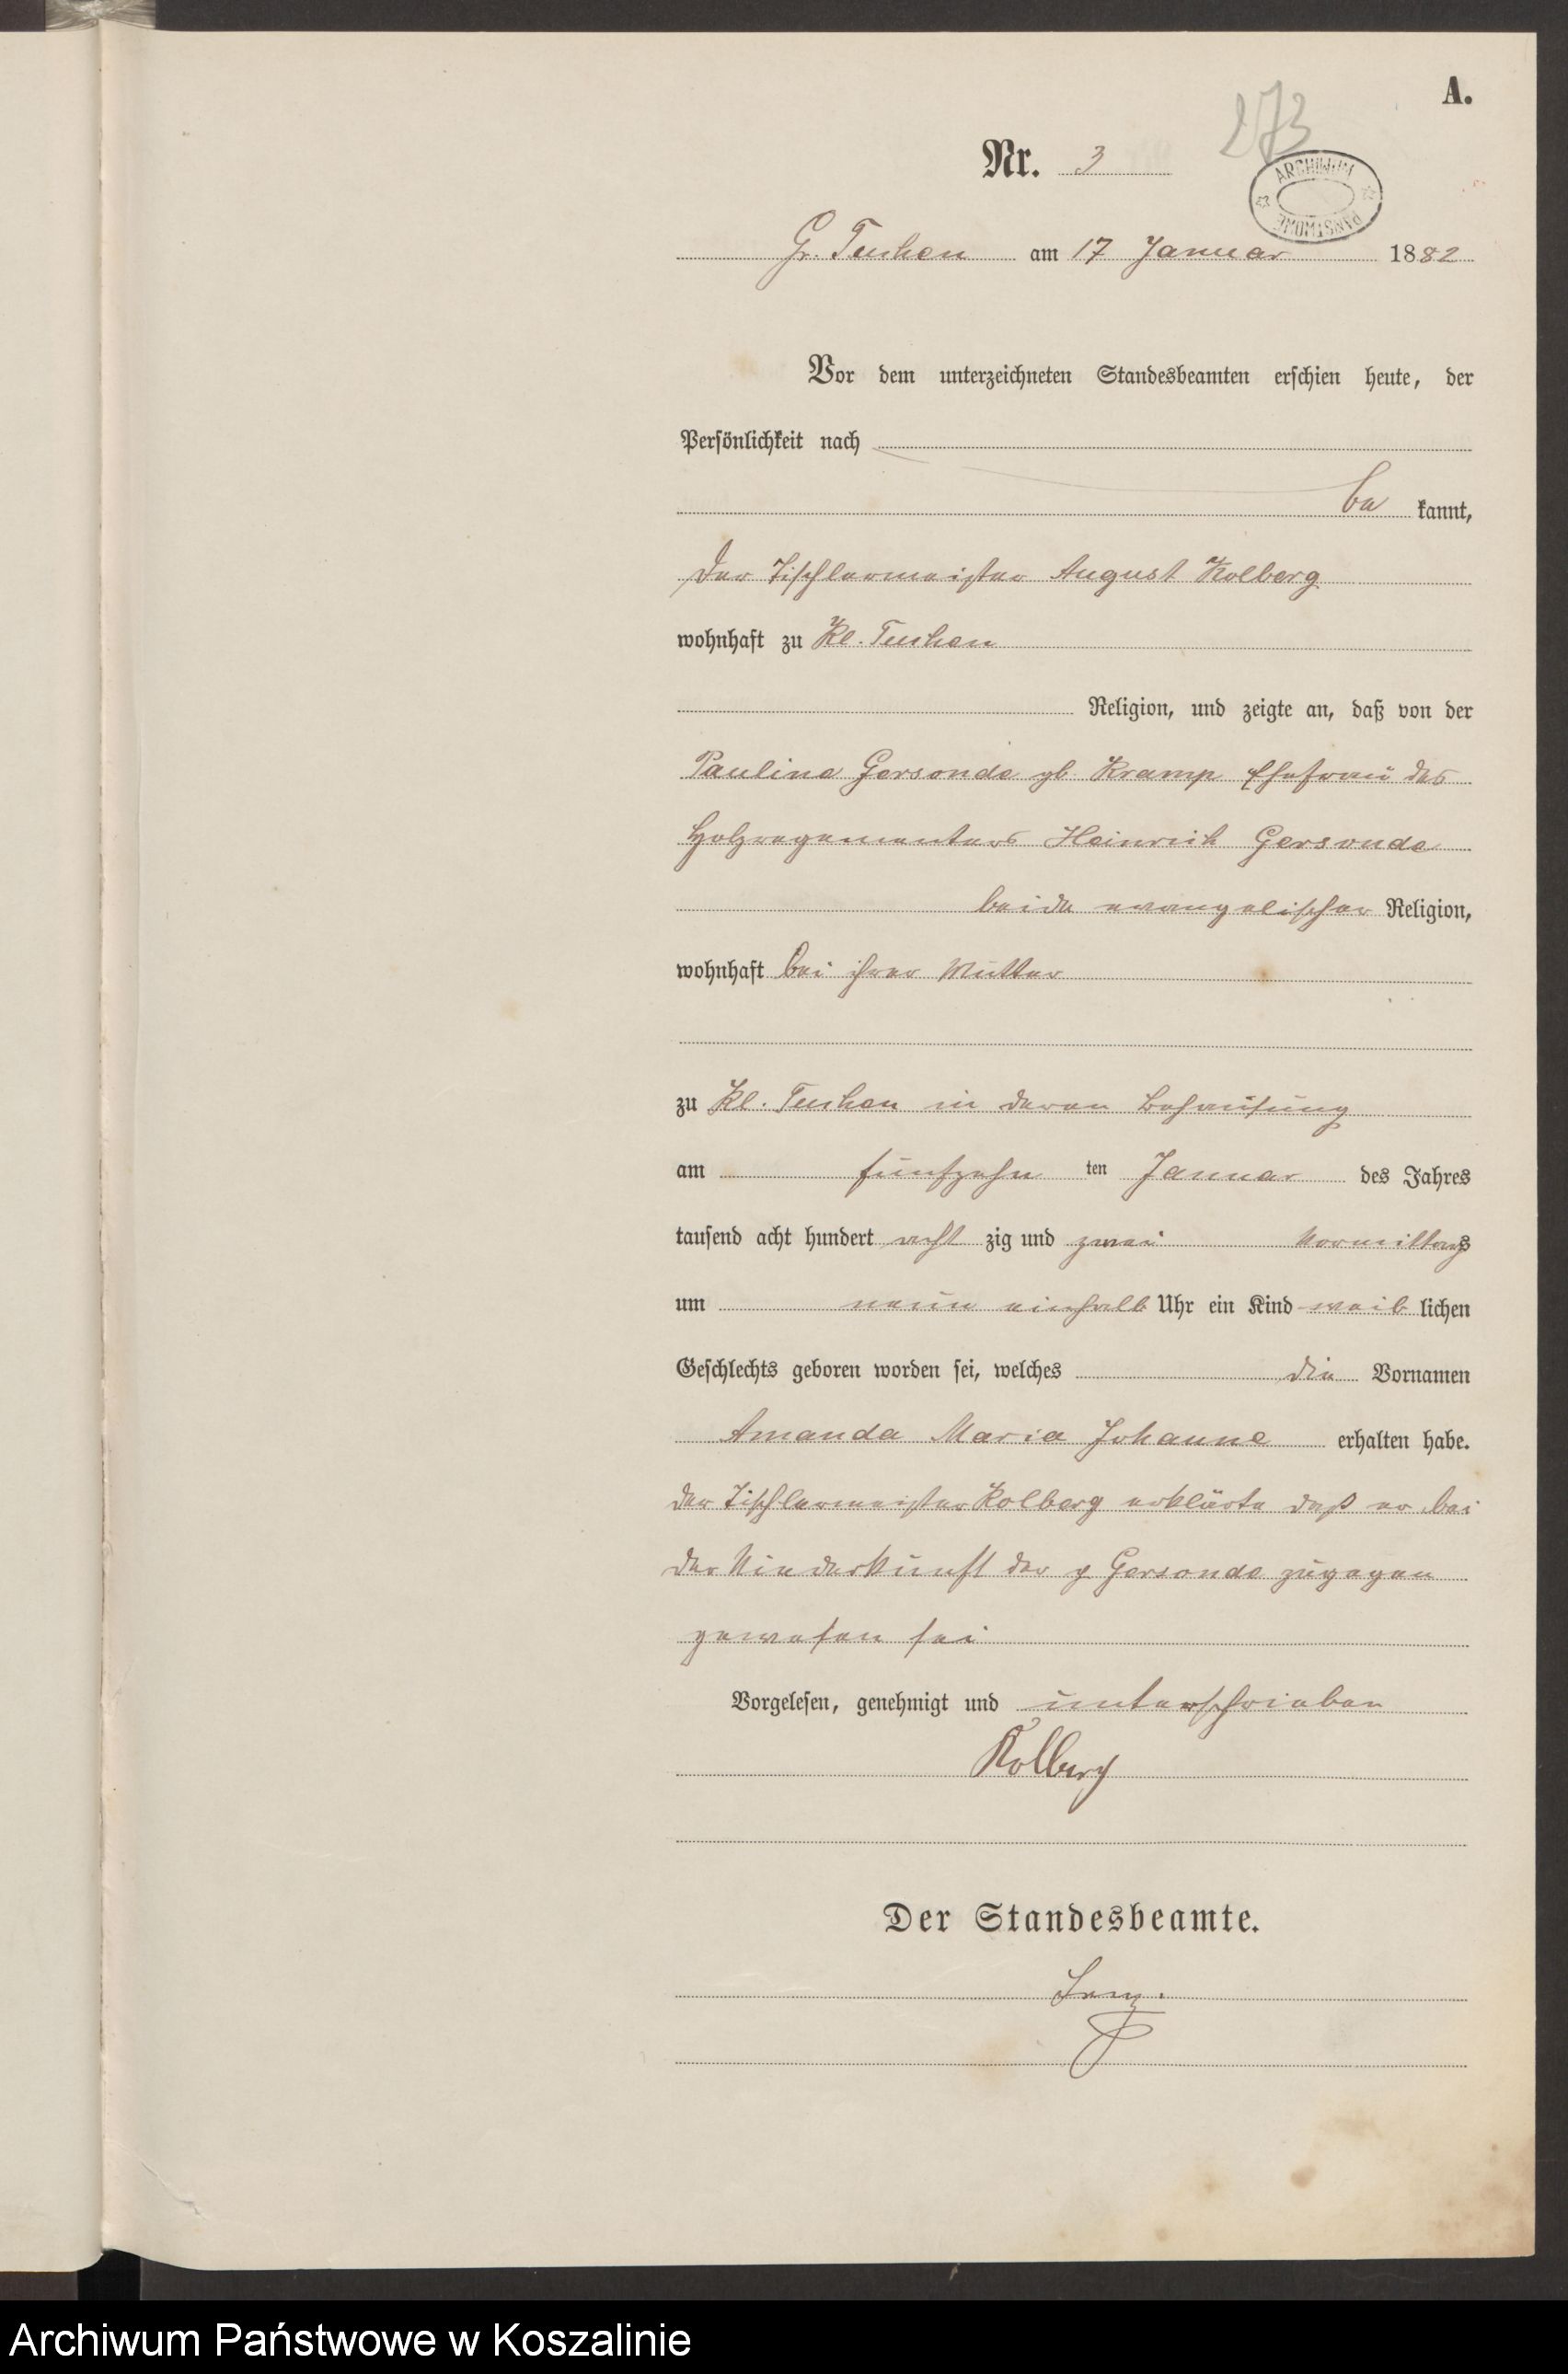 A.
273
Nr. 3
ARCHIWUM PAŃSTWOWE
Gr. Tuchen am 17 Januar 1882
Vor dem unterzeichneten Standesbeamten erschien heute, der
Persönlichkeit nach
be kannt,
der Tischlermeister August Kolberg
wohnhaft zu Kl. Tuchen
Religion, und zeigte an, daß von der
Pauline Gersonde gb. Kramp Ehefrau des
Holzregementers Heinrich Gersonde
beide evangelischer Religion,
wohnhaft bei ihrer Mutter
zu Kl. Tuchen in deren Behausung
am fünfzehn ten Januar des Jahres
tausend acht hundert acht zig und zwei Vormittags
um neun einhalb Uhr ein Kind weib lichen
Geschlechts geboren worden sei, welches die Vornamen
Amanda Maria Johanne erhalten habe.
der Tischlermeister Kolberg erklärte daß er bei
der Niederkunft der p Gersonde zugegen
gewesen sei
Vorgelesen, genehmigt und unterschrieben
Kolberg
Der Standesbeamte.
Archiwum Państwowe w Koszalinie